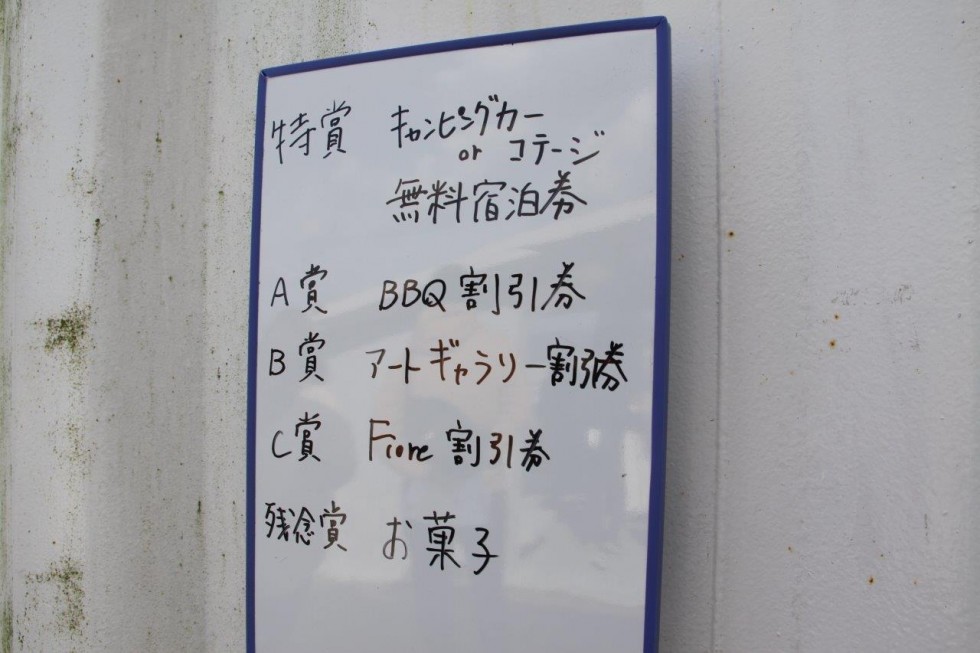 特賞 キャンピングカー
or コテージ
無料宿泊券
A賞 BBQ割引券
B賞 アートギャラリー割引券
C賞 Fiore割引券
残念賞 お菓子